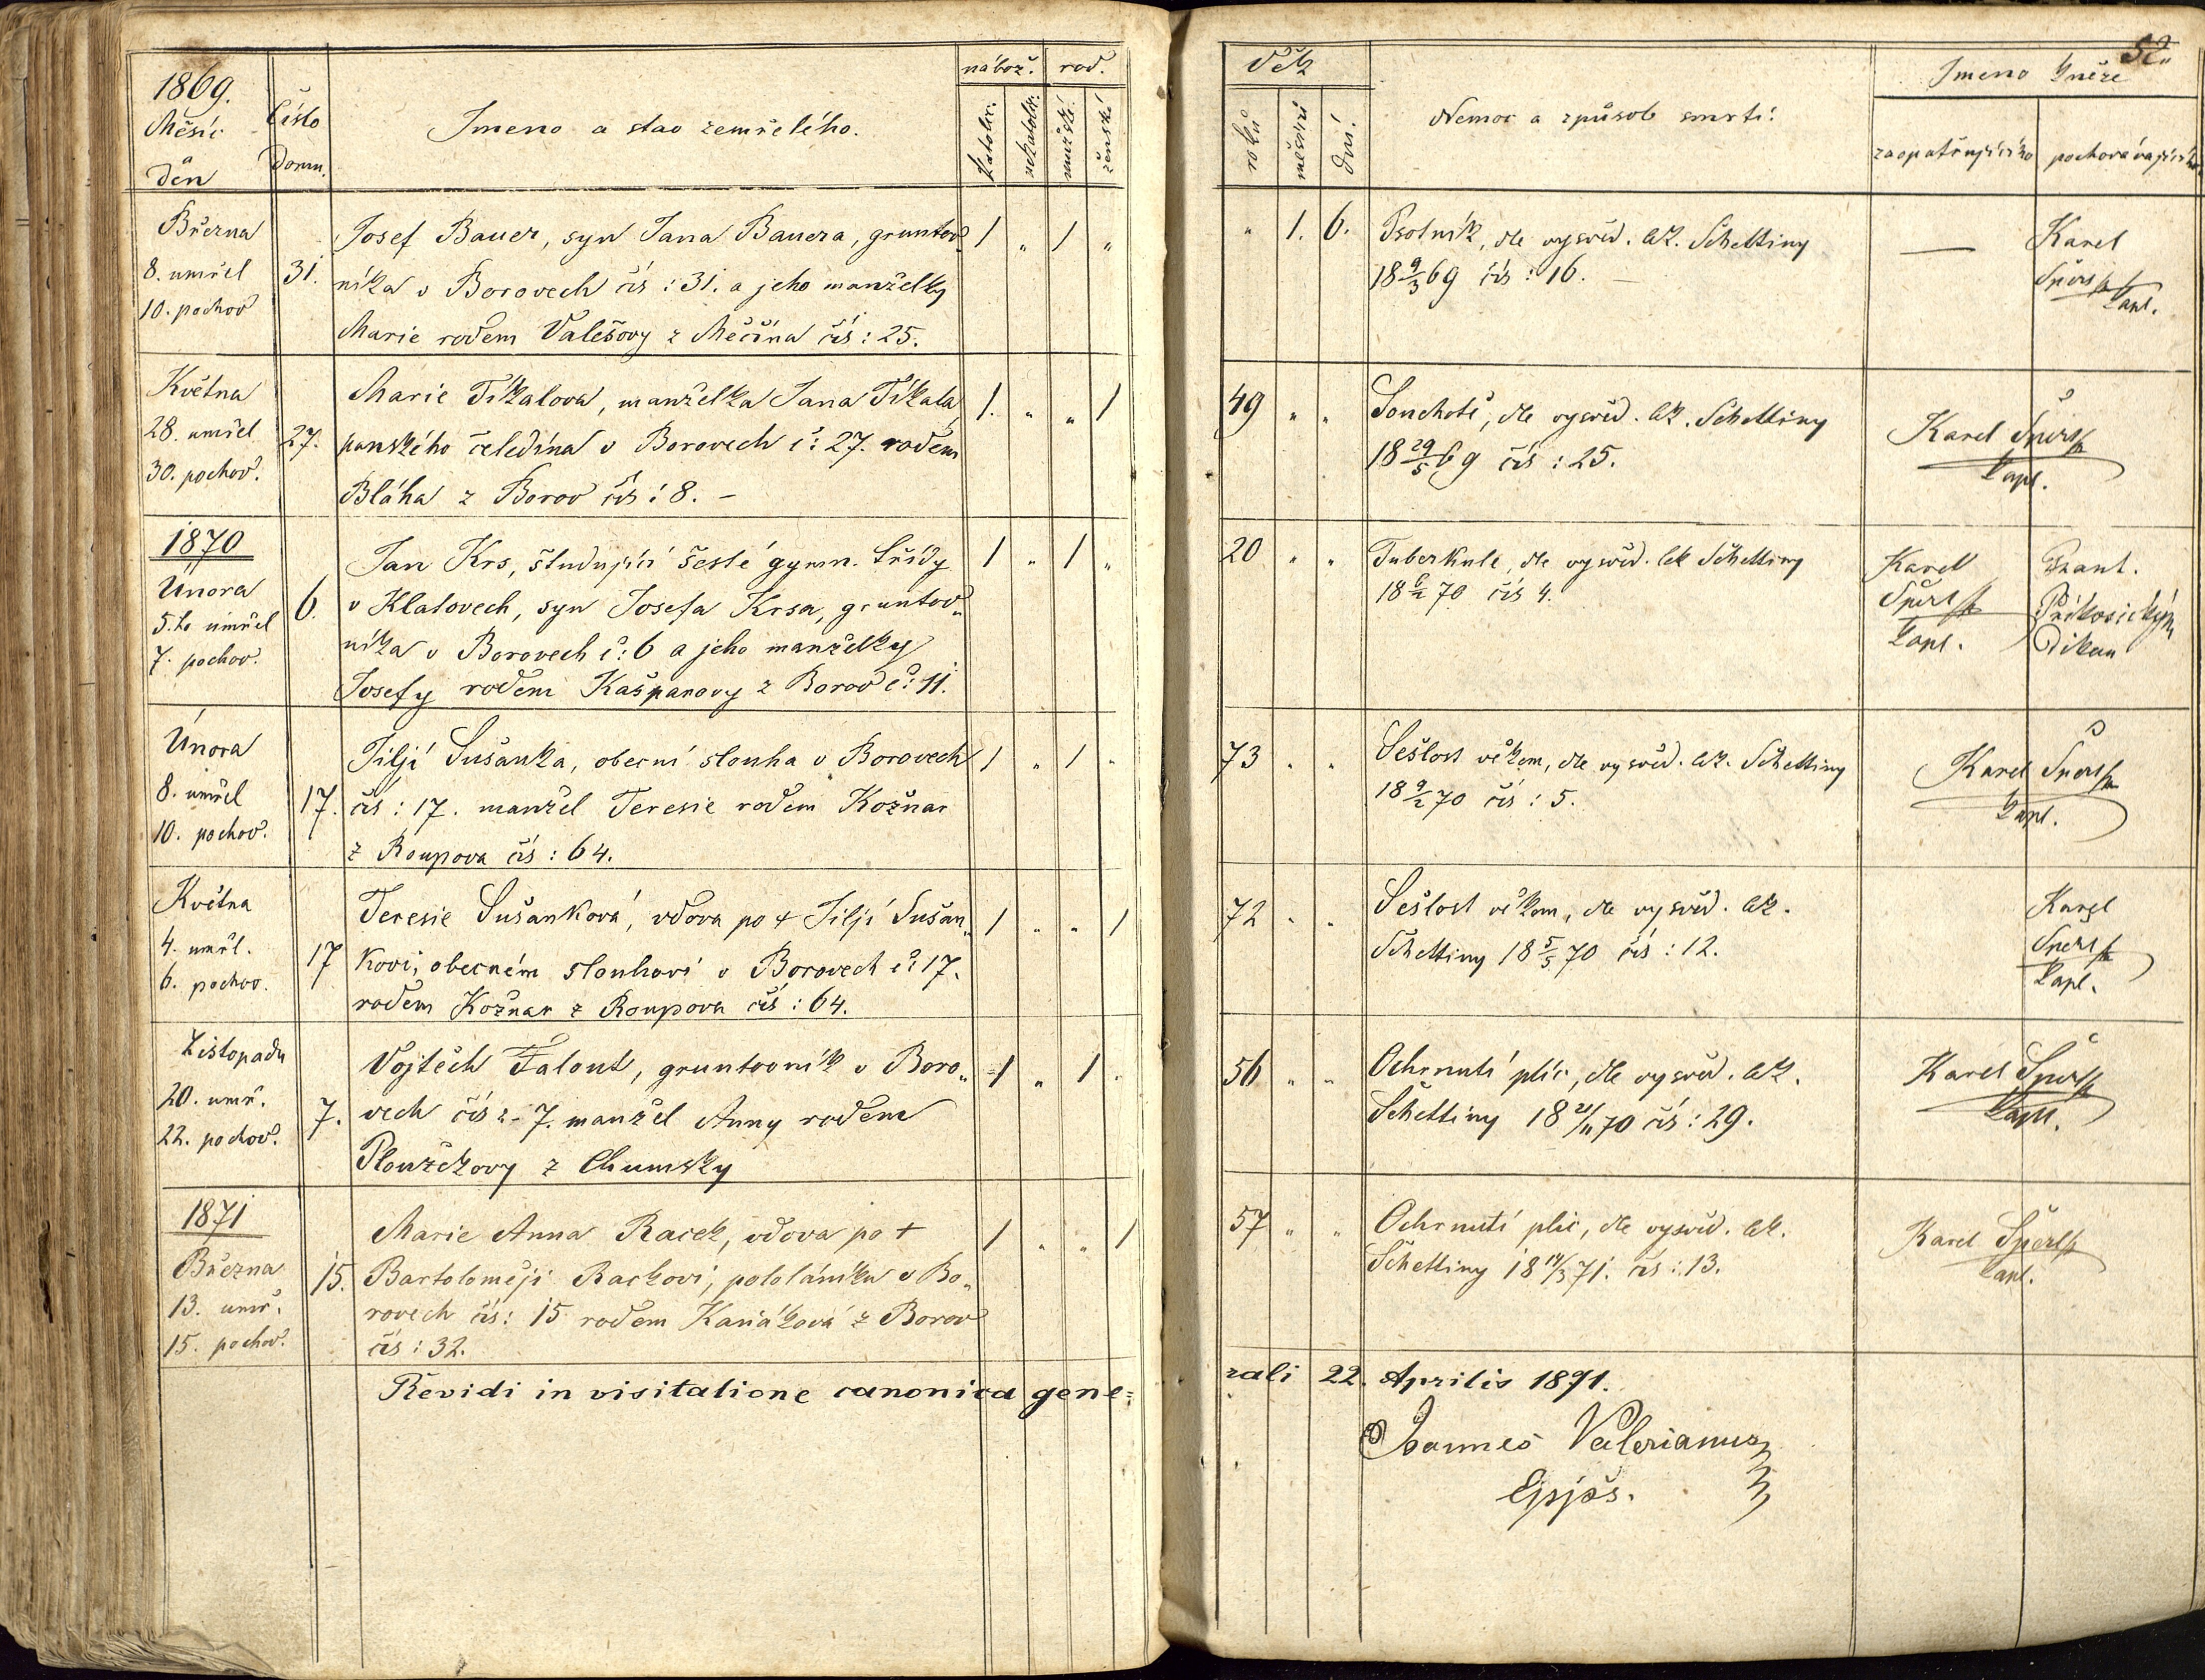 1869.
Měsíc
Den
Číslo
Domu.
Jmeno a stav zemřelého.
nábož. rod.
katolic. nekatolic. mužské. ženské
Března
8. umřel
10. pochov
31.
Josef Bauer, syn Jana Bauera, gruntov
níka v Borovech čís: 31. a jeho manželky
Marie rodem Valešovy z Měčína čís: 25.
1 „ 1 „
Května
28. umřel
30. pochov.
27.
Marie Tikalova, manželka Jana Tikala
panského čeledína v Borovech č: 27. rodem
Bláha z Borov čís: 8. –
1. „ „ 1
1870
Února
5.ho umřel
7. pochov.
6.
Jan Krs, študující šesté gymn. třídy
v Klatovech, syn Josefa Krsa, gruntov„
níka v Borovech č: 6 a jeho manželky
Josefy rodem Kašparovy z Borov č: 11.
1 „ 1 „
Února
8. umřel
10. pochov.
17.
Jiljí Sušanka, obecní slouha v Borovech
čís: 17. manžel Teresie rodem Kožnar
z Roupova čís: 64.
1 „ 1 „
Května
4. umřl.
6. pochov.
17
Teresie Sušanková, vdova po + Jiljí Sušan„
kovi, obecném slouhovi v Borovech č: 17.
rodem Kožnar z Roupova čís: 64.
1 „ „ 1
Listopadu
20. umř.
22. pochov.
7.
Vojtěch Falout, gruntovník v Boro„
vech čís: 7. manžel Anny rodem
Ploužkovy z Chumsky
1 „ 1 „
1871
Března
13. umř.
15. pochov.
15.
Marie Anna Racek, vdova po +
Bartoloměji Rackovi, pololáníku v Bo„
rovech čís: 15 rodem Kaňáková z Borov
čís: 32.
1 „ „ 1
Revidi in visitatione canonica gene=
52„
Věk
roků měsíců dní.
Nemoc a způsob smrti:
Jmeno kněze
zaopatřujícího pochovávajícího
„ 1. 6.
Psotník, dle vysvěd. lék. Schettiny
18 9/3 69 čís: 16. –
—
Karel
Šperl
kapl.
49 „ „
Souchotě, dle vysvěd. lék. Schettiny
18 29/5 69 čís: 25.
Karel Šperl
kapl.
20 „ „
Tuberkule, dle vysvěd. lék Schettiny
18 6/2 70 čís 4.
Karel
Šperl
kapl.
Frant.
Příkosický
Děkan
73 „ „
Sešlost věkem, dle vysvěd. lék. Schettiny
18 9/2 70 čís: 5.
Karel Šperl
kapl.
72 „ „
Sešlost věkem, dle vysvěd. lék.
Schettiny 18 5/5 70 čís: 12.
Karel
Šperl
kapl.
56 „ „
Ochrnutí plic, dle vysvěd. lék.
Schettiny 18 21/11 70 čís: 29.
Karel Šperl
kapl.
57 „ „
Ochrnutí plic, dle vysvěd. lék.
Schettiny 18 14/3 71. čís: 13.
Karel Šperl
kapl.
rali 22. Aprilis 1891.
Joannes Valerianus
Eppus.